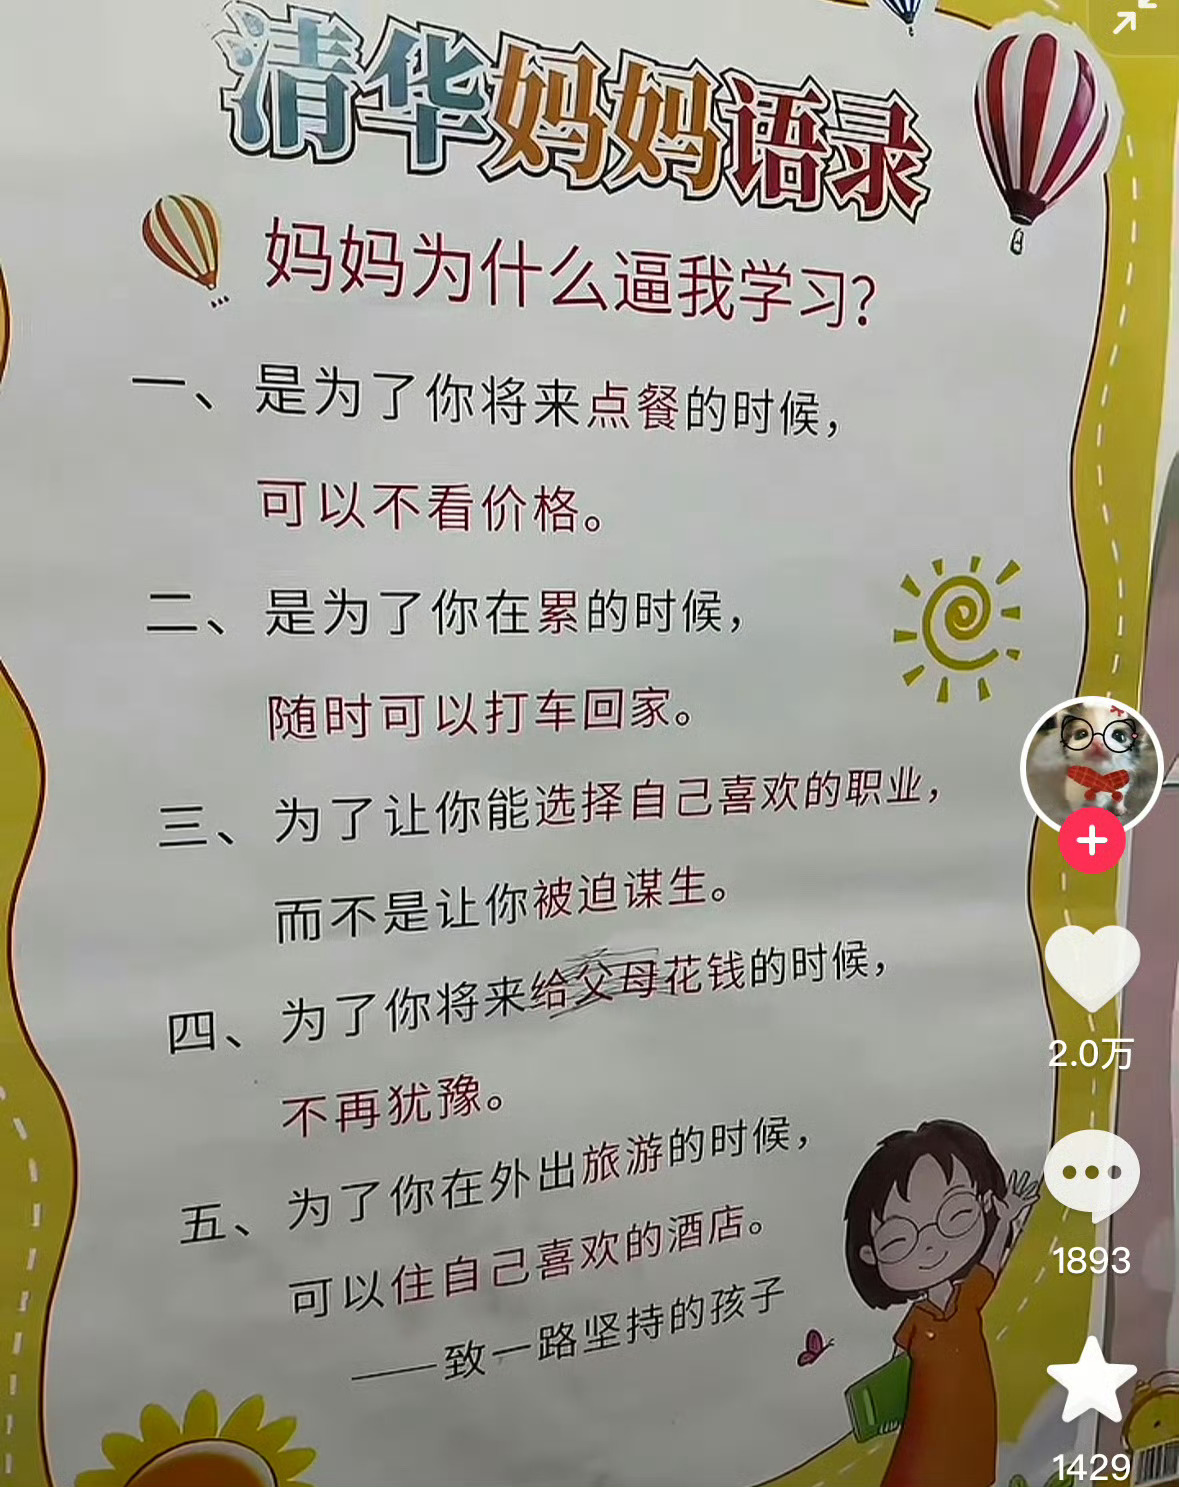 清华妈妈语录
妈妈为什么逼我学习？
一、是为了你将来点餐的时候，
可以不看价格。
二、是为了你在累的时候，
随时可以打车回家。
三、为了让你能选择自己喜欢的职业，
而不是让你被迫谋生。
四、为了你将来给父母花钱的时候，
不再犹豫。
五、为了你在外出旅游的时候，
可以住自己喜欢的酒店。
——致一路坚持的孩子
2.0万
1893
1429